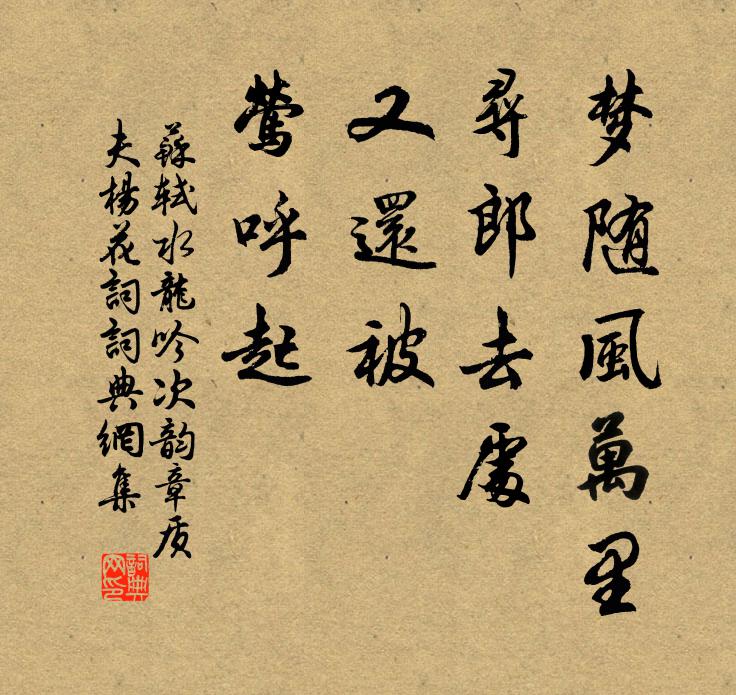 梦随風萬里
尋郎去處
又還被
鶯呼起
蘇軾水龍吟次韵章质
夫楊花詞詞典網集
詞典
网印